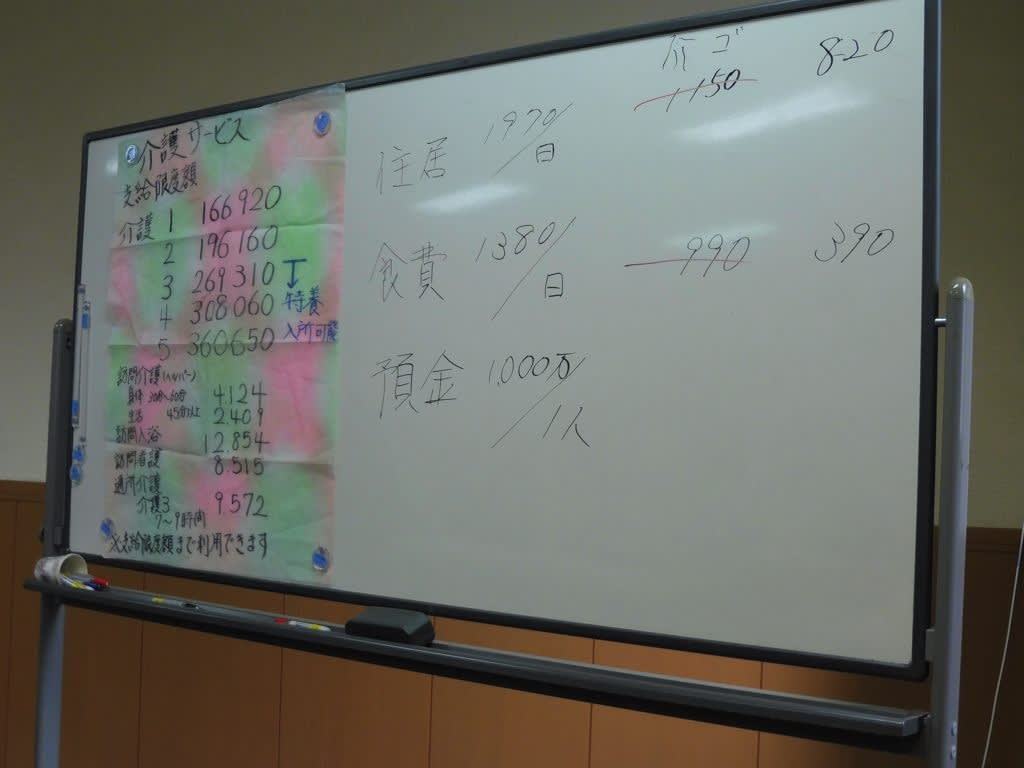 介護サービス
支給限度額
介護 1 166920
2 196160
3 269310
4 308060
5 360650
特養
入所可能
訪問介護(ヘルパー)
身体 30分~60分 4.124
生活 45分以上 2.409
訪問入浴 12.854
訪問看護 8.515
通所介護
介護3 9.572
7~9時間
※支給限度額まで利用できます
介ゴ
住居 1970/日 1150 820
食費 1380/日 990 390
預金 1,000万/1人